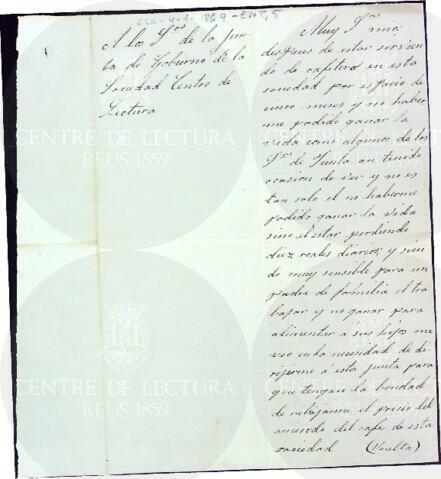 CLR-4-1-1869-ENT,5
A los Sres de la jun-
ta de Gobierno de la
Sociedad Centro de
Lectura
Muy Sres mios
despues de estar sirvien
do de cafetero en esta
sociedad por espacio de
cinco meses y no haber
me podido ganar la
vida como algunos de los
Sres de Junta an tenido
ocasion de ver y no es
tan solo el no haberme
podido ganar la vida
sino el estar perdiendo
diez reales diarios; y sien
do muy sensible para un
padre de familia el tra
bajar y no ganar para
alimentar á sus hijos me
veo en la necesidad de di
rijirme á esta junta para
que tengan la bondad
de rebajarme el precio del
arriendo del cafe de esta
sociedad (Vuelta)
CENTRE DE LECTURA
REUS 1859
CENTRE DE LECTURA
REUS 1859
CENTRE DE LECTURA
REUS 1859
CENTRE DE LECTURA
REUS 1859